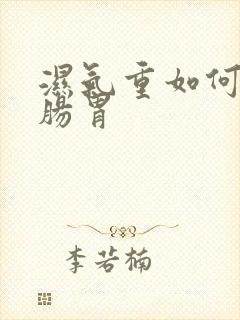 濕氣重如何
腸胃
李若楠